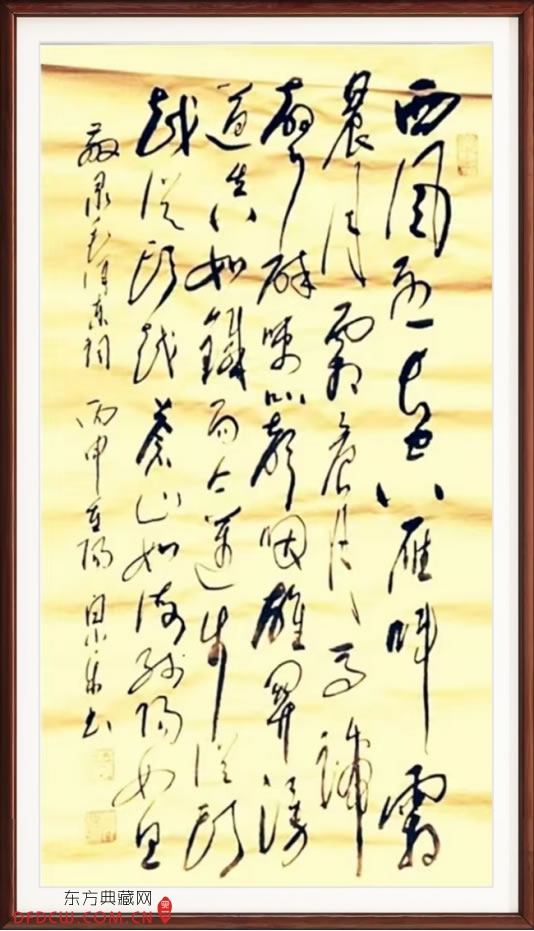 西风烈长空雁叫霜
晨月霜晨月马蹄
声碎喇叭声咽雄关漫
道真如铁而今迈步从头
越从头越苍山如海残阳如血
敬录毛泽东词 丙申重阳 书
东方典藏网
DFDCW.COM.CN